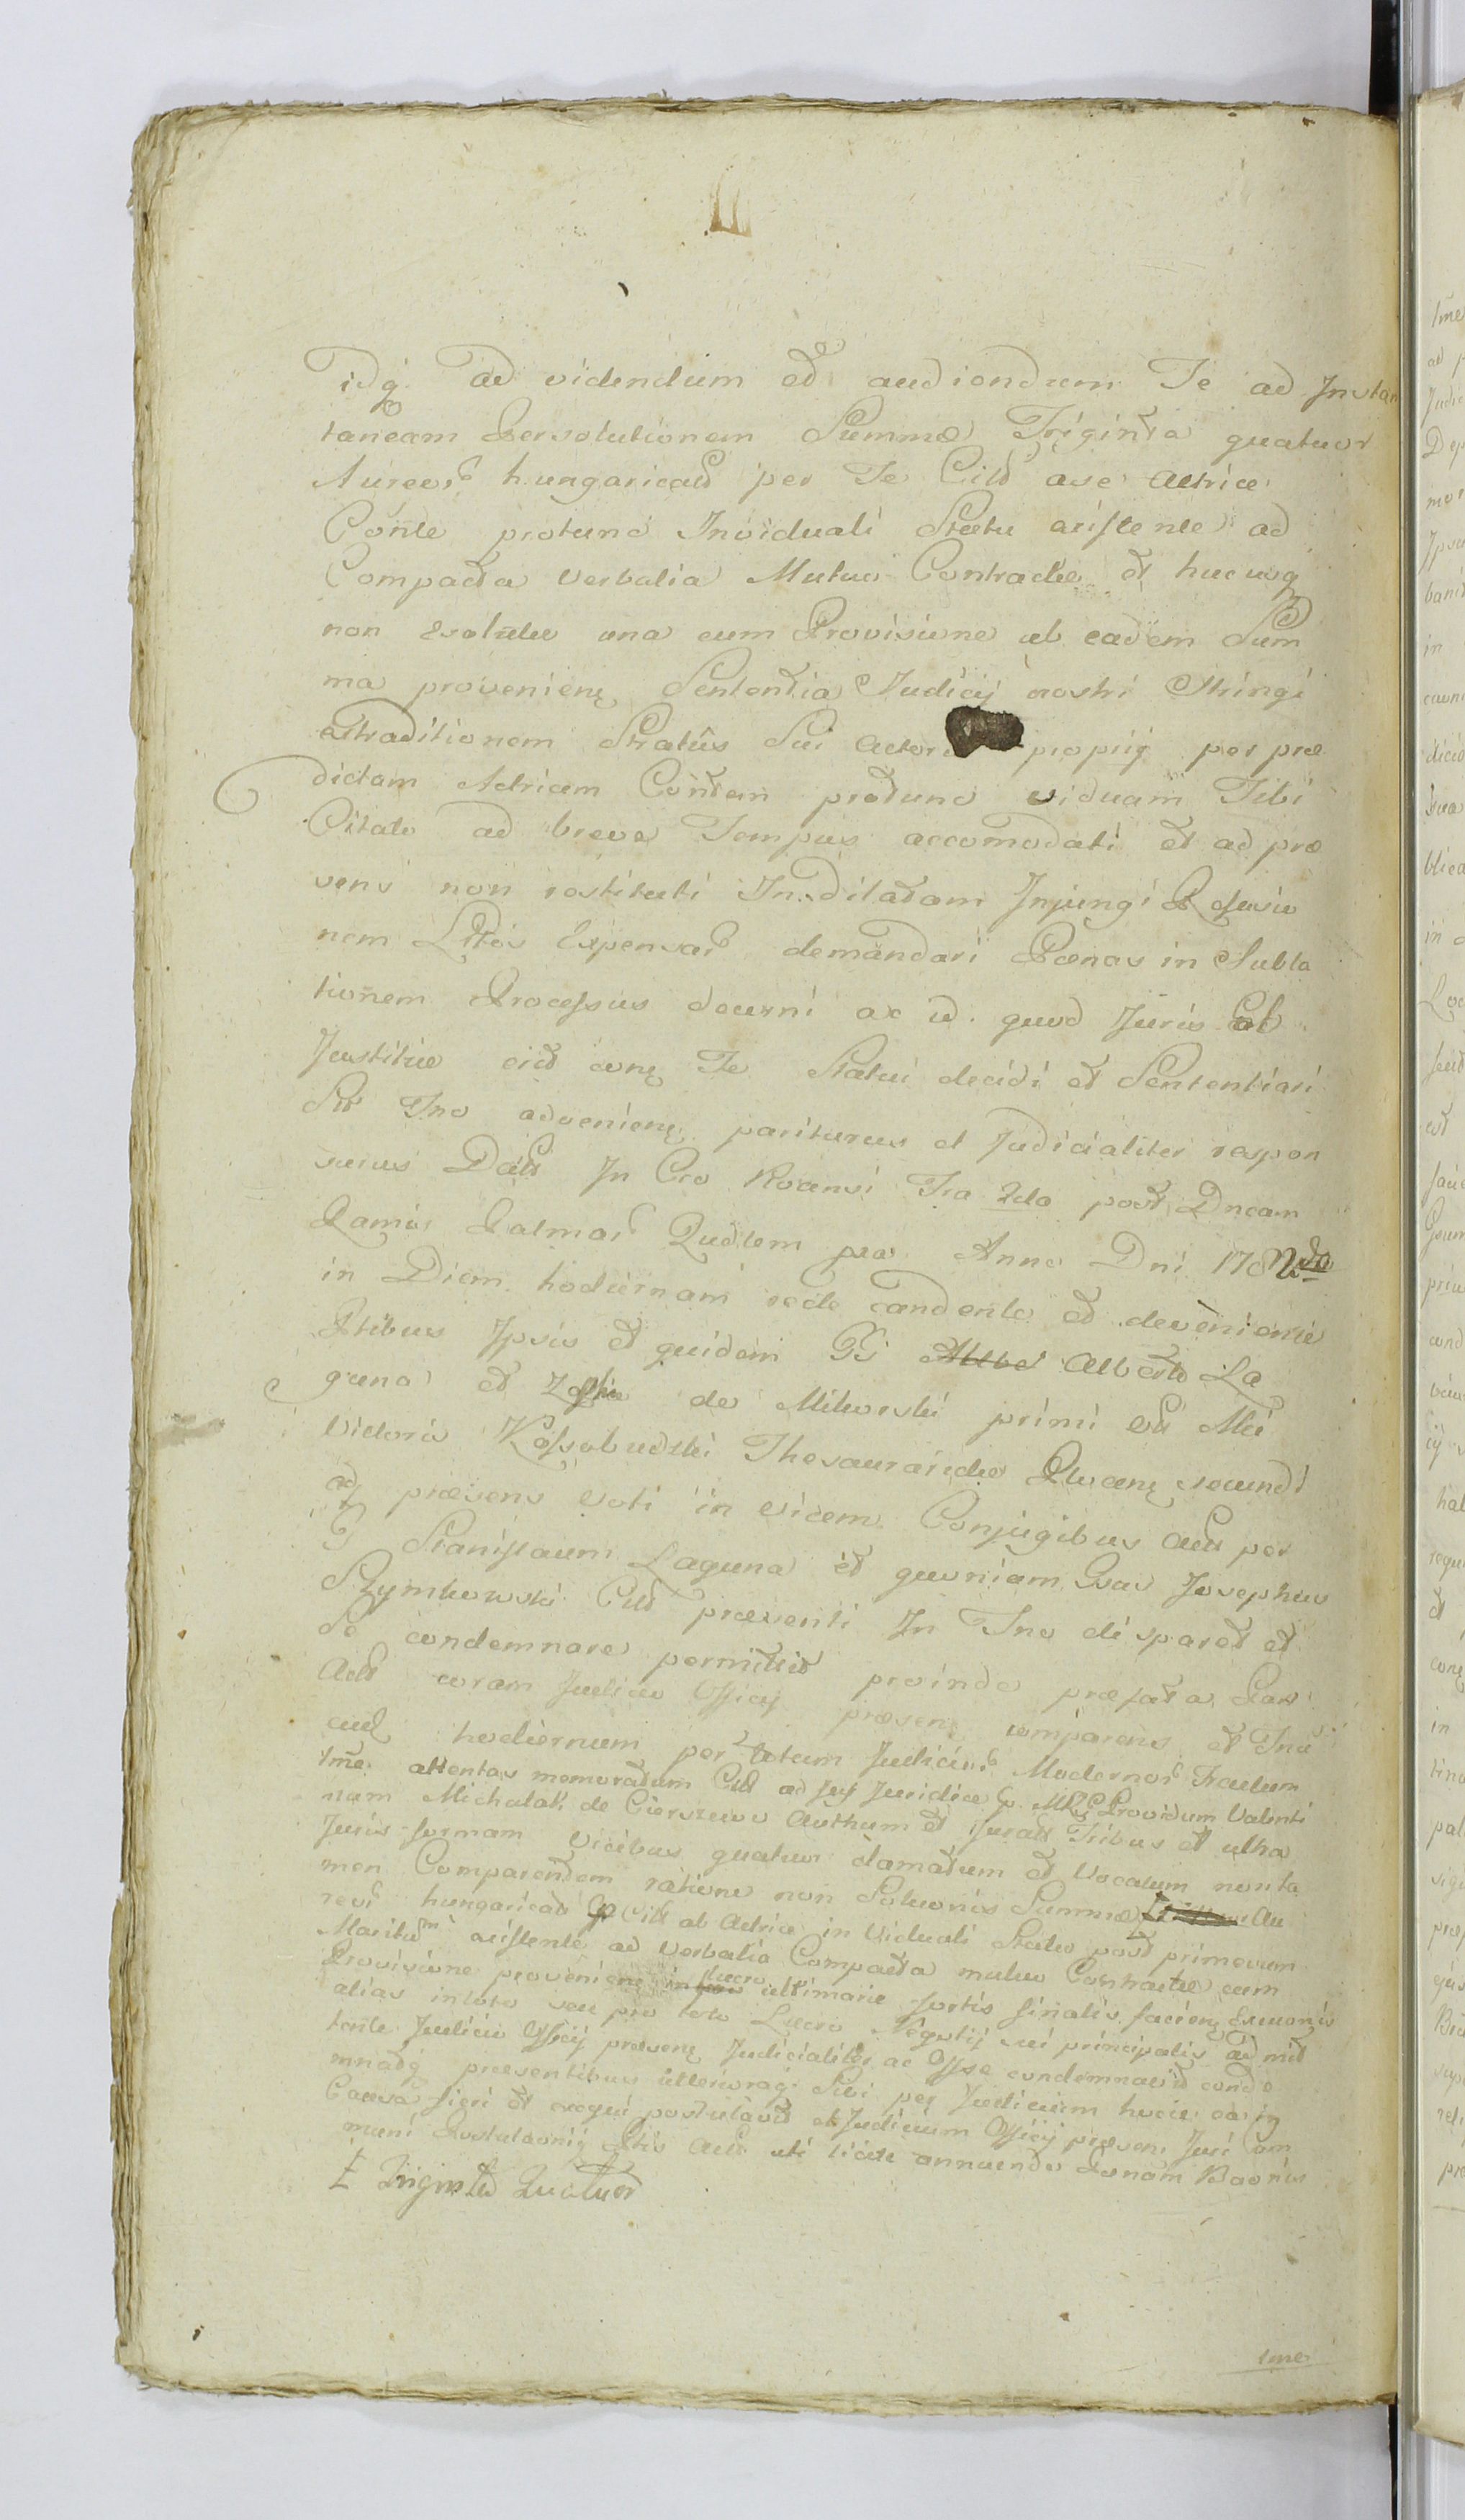 idq. ad videndum et audiendum Te ad Instan
taneam Persolutionem Summæ Triginta quatuor
Aureor hungarical per Te Citt a se Actrice
Conte protunc Inviduali Statu existente ad
Compacta verbalia Mutuo Contractæ et hucusq
non exolutæ una cum Provisione ab eadem Sum
ma provenien Sententia Judicij nostri Stringi
extraditionem Status Sui proprij per præ
dictam Actricem Contem protunc viduam Tibi
Citato ad breve Tempus accomodati et ad præ
sens non restituti In dilatam Injungi Refusio
nem Litis Expensar demandari Pænas in Subla
tionem Processus decerni ac id quod Juris et
Justitiæ erit conq Te Statui decidi et Sententiari
Sis Tno advenien pariturus et Judicialiter respon
surus Datt In Cro Fra 2da post Dncam
Ramis Palmar Qudtem præ Anno Dni 1782do
in Diem hodiernam cadente et deveniente
Ptibus Ipsis et quidem GG Alberto La
guna et Zophia de Milewski primi
Victoris Kossobudzki Thesaurariedæ secundi
adq præsens voti in vicem Conjugibus Actt per
G Stanislaum Laguna et quoniam Gsus Josephus
Szymkowski Citt præsenti In Tno disparet et
Se condemnare permittit proinde præfata Pars
Act coram Judicio Officij præsen comparens et Tnu
eud hodiernum per totum Judicior Modernor Tractum
tme attentas memoratum Citt ad Juridice p. Providum Valenti
num Michalak de Cierszewo Authum et Juratt Tribus et ultra
Juris formam vicibus quatuor clamatum et Vocatum non ta
men Comparentem ratione non Solutionis Summæ Au
reor hungarical p Citt ab Actrice in Viduali Statu post primevum
Maritum existente ad verbalia Compacta mutuo Contractæ cum
Provisione provenien in lucro ultimarie sortis finalis facien
alias in toto seu pro toto Lucro Negotij sui principalis ad mit
tente Judicio Officij præsen Judicialiter ac Offse condemnavit conde
mnatq præsentibus ulterioraq Sibi per Judicium hocce ea in
Causa fieri et exequi postulavit et Judicium Officij præsen Juri Com
muni Postulationij Ptis Actt uti licite annuendo Pœnam Baonis
Ł Triginta Quatuor
tme